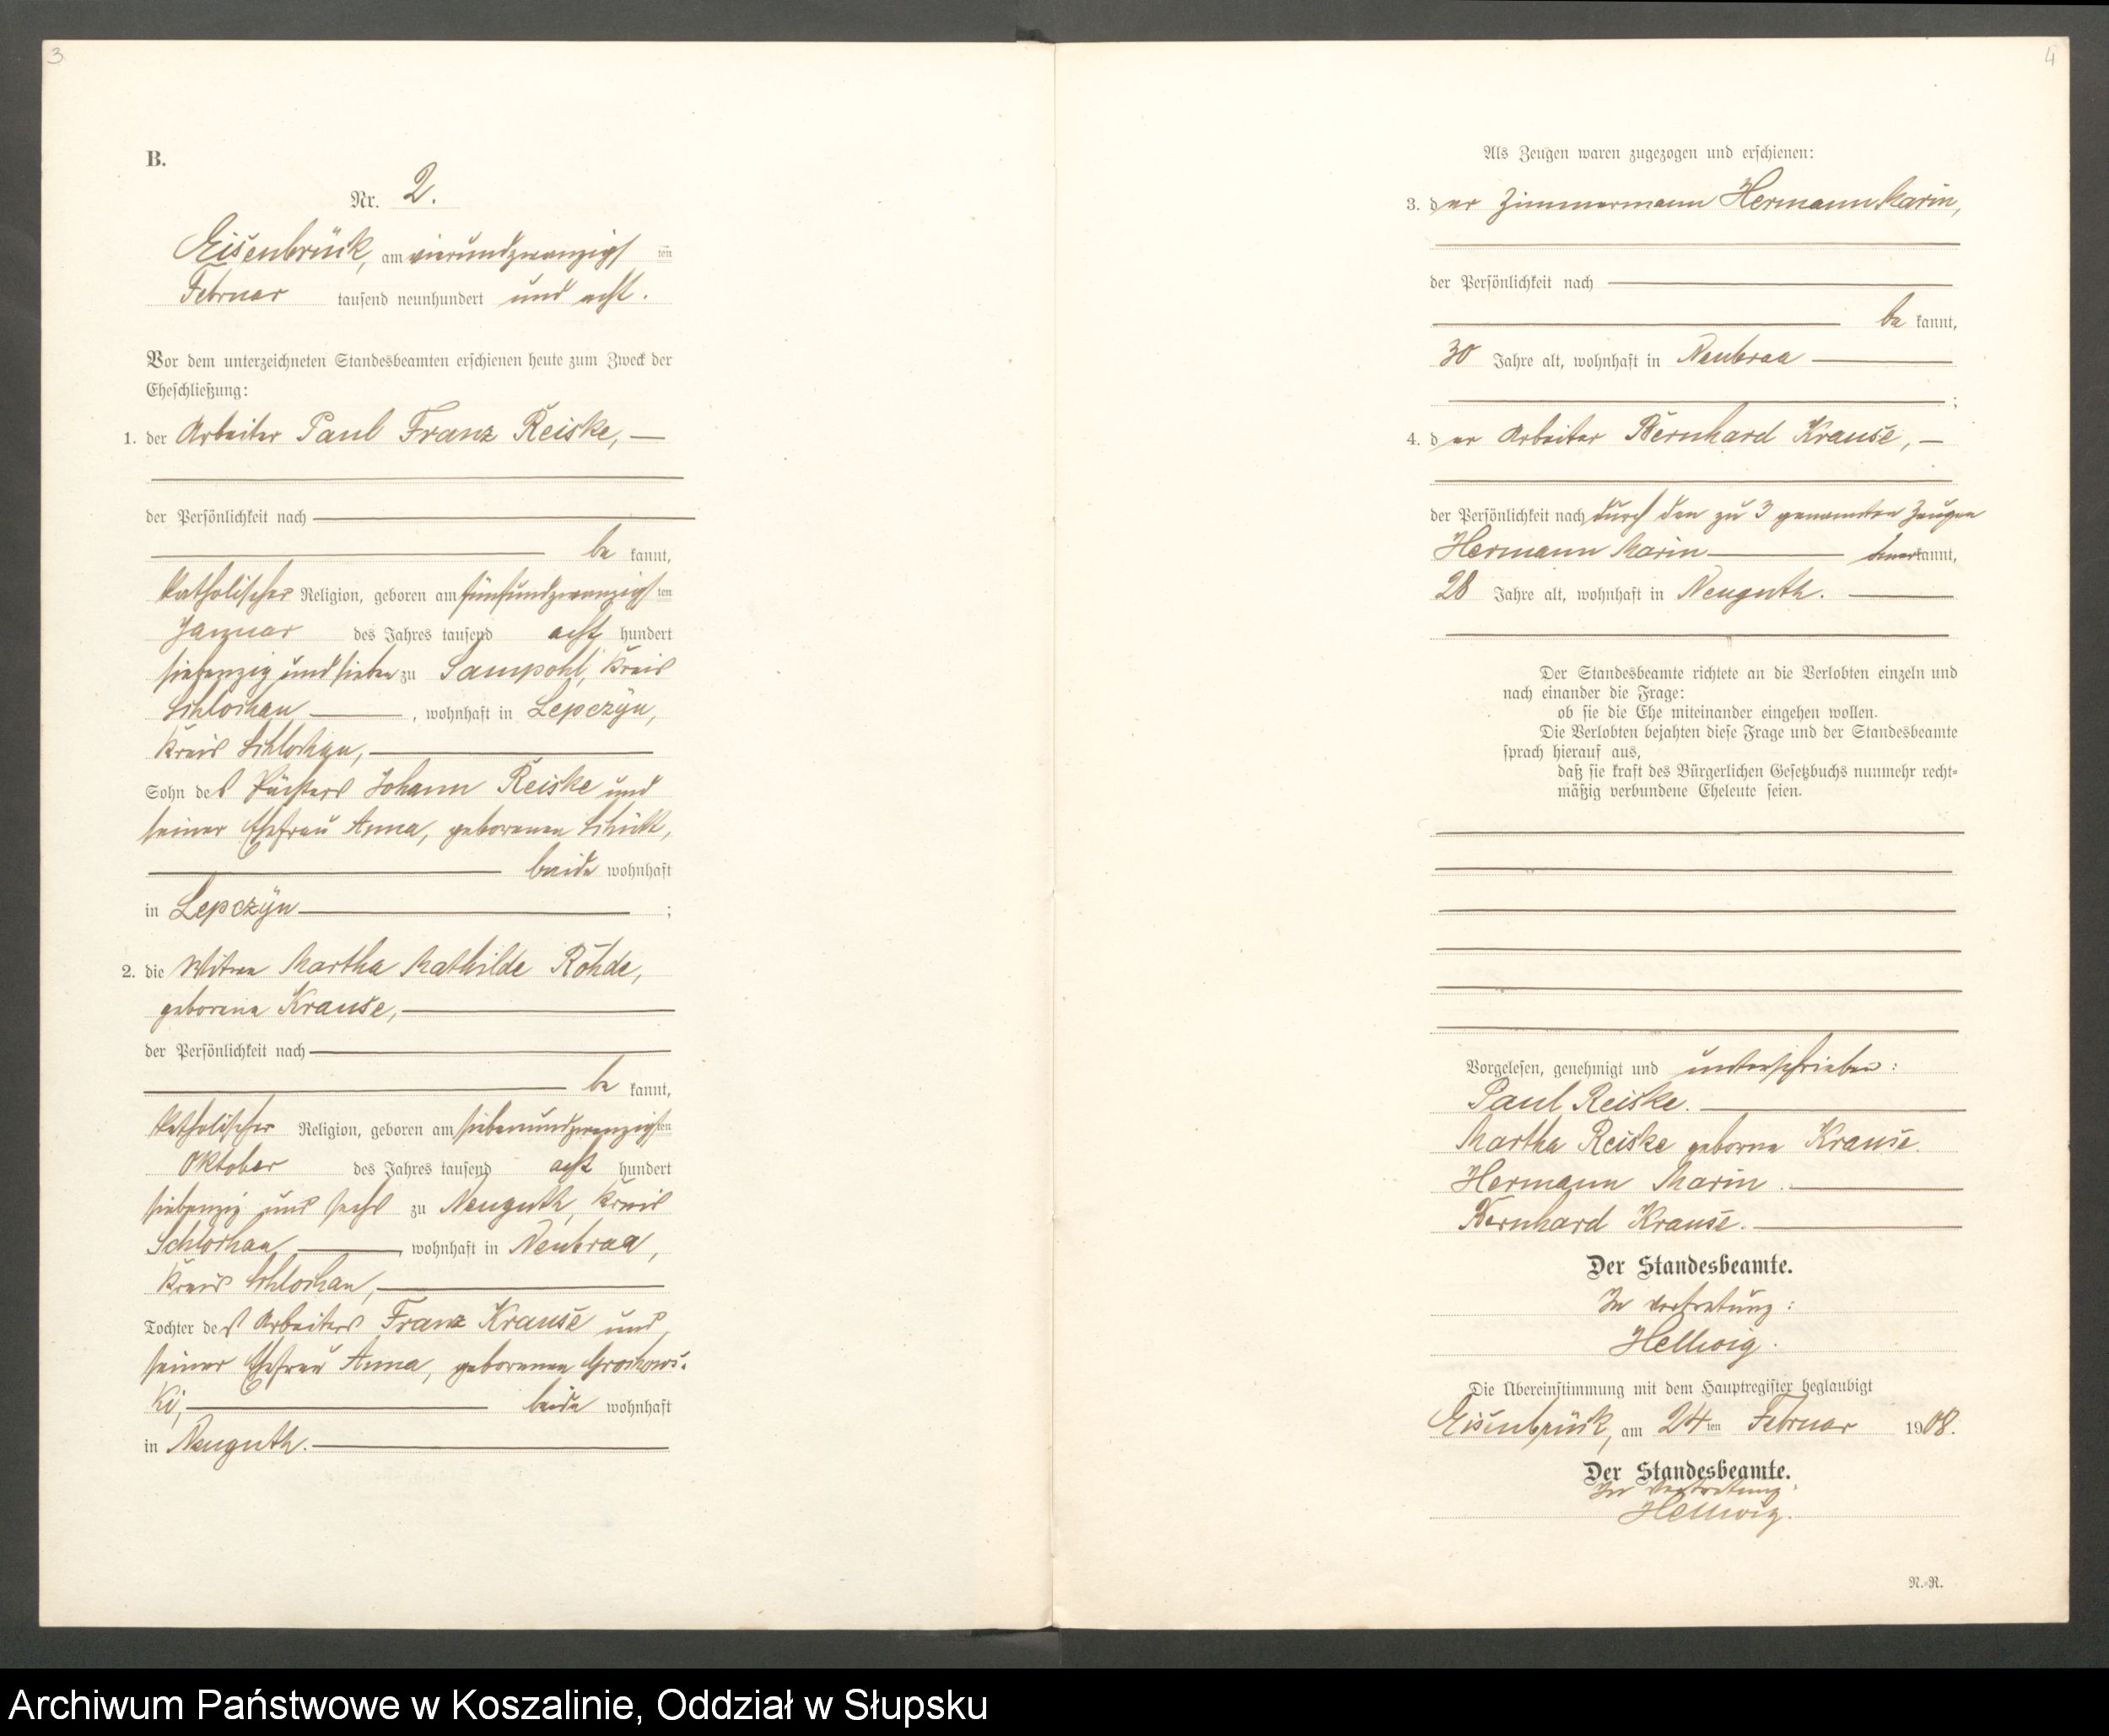 3
B.
Nr. 2.
Eisenbrück, am vierundzwanzigs ten
Februar tausend neunhundert und acht.
Vor dem unterzeichneten Standesbeamten erschienen heute zum Zweck der
Eheschließung:
1. der Arbeiter Paul Franz Reiske,
der Persönlichkeit nach
be kannt,
katholischer Religion, geboren am fünfundzwanzigs ten
Januar des Jahres tausend acht hundert
siebenzig und sieben zu Sampohl, Kreis
Schlochau, wohnhaft in Lepczyn,
Kreis Schlochau,
Sohn des Pächters Johann Reiske und
seiner Ehefrau Anna, geborenen Schütt,
beide wohnhaft
in Lepczyn ;
2. die Witwe Martha Mathilde Rohde,
geborene Krause,
der Persönlichkeit nach
be kannt,
katholischer Religion, geboren am siebenundzwanzigs ten
Oktober des Jahres tausend acht hundert
siebenzig und sechs zu Neuguth, Kreis
Schlochau, wohnhaft in Neubraa,
Kreis Schlochau,
Tochter des Arbeiters Franz Krause und
seiner Ehefrau Anna, geborenen Grochows-
ki, beide wohnhaft
in Neuguth.
4
Als Zeugen waren zugezogen und erschienen:
3. der Zimmermann Hermann Marin,
der Persönlichkeit nach
be kannt,
30 Jahre alt, wohnhaft in Neubraa
;
4. der Arbeiter Bernhard Krause,
der Persönlichkeit nach durch den zu 3 genannten Zeugen
Hermann Marin kannt,
28 Jahre alt, wohnhaft in Neuguth.
Der Standesbeamte richtete an die Verlobten einzeln und
nach einander die Frage:
ob sie die Ehe miteinander eingehen wollen.
Die Verlobten bejahten diese Frage und der Standesbeamte
sprach hierauf aus,
daß sie kraft des Bürgerlichen Gesetzbuchs nunmehr recht-
mäßig verbundene Eheleute seien.
Vorgelesen, genehmigt und unterschrieben:
Paul Reiske.
Martha Reiske geborne Krause.
Hermann Marin.
Bernhard Krause.
Der Standesbeamte.
In Vertretung:
Hellwig.
Die Übereinstimmung mit dem Hauptregister beglaubigt
Eisenbrück, am 24 ten Februar 1908.
Der Standesbeamte.
In Vertretung:
Hellwig.
N.-R.
Archiwum Państwowe w Koszalinie, Oddział w Słupsku